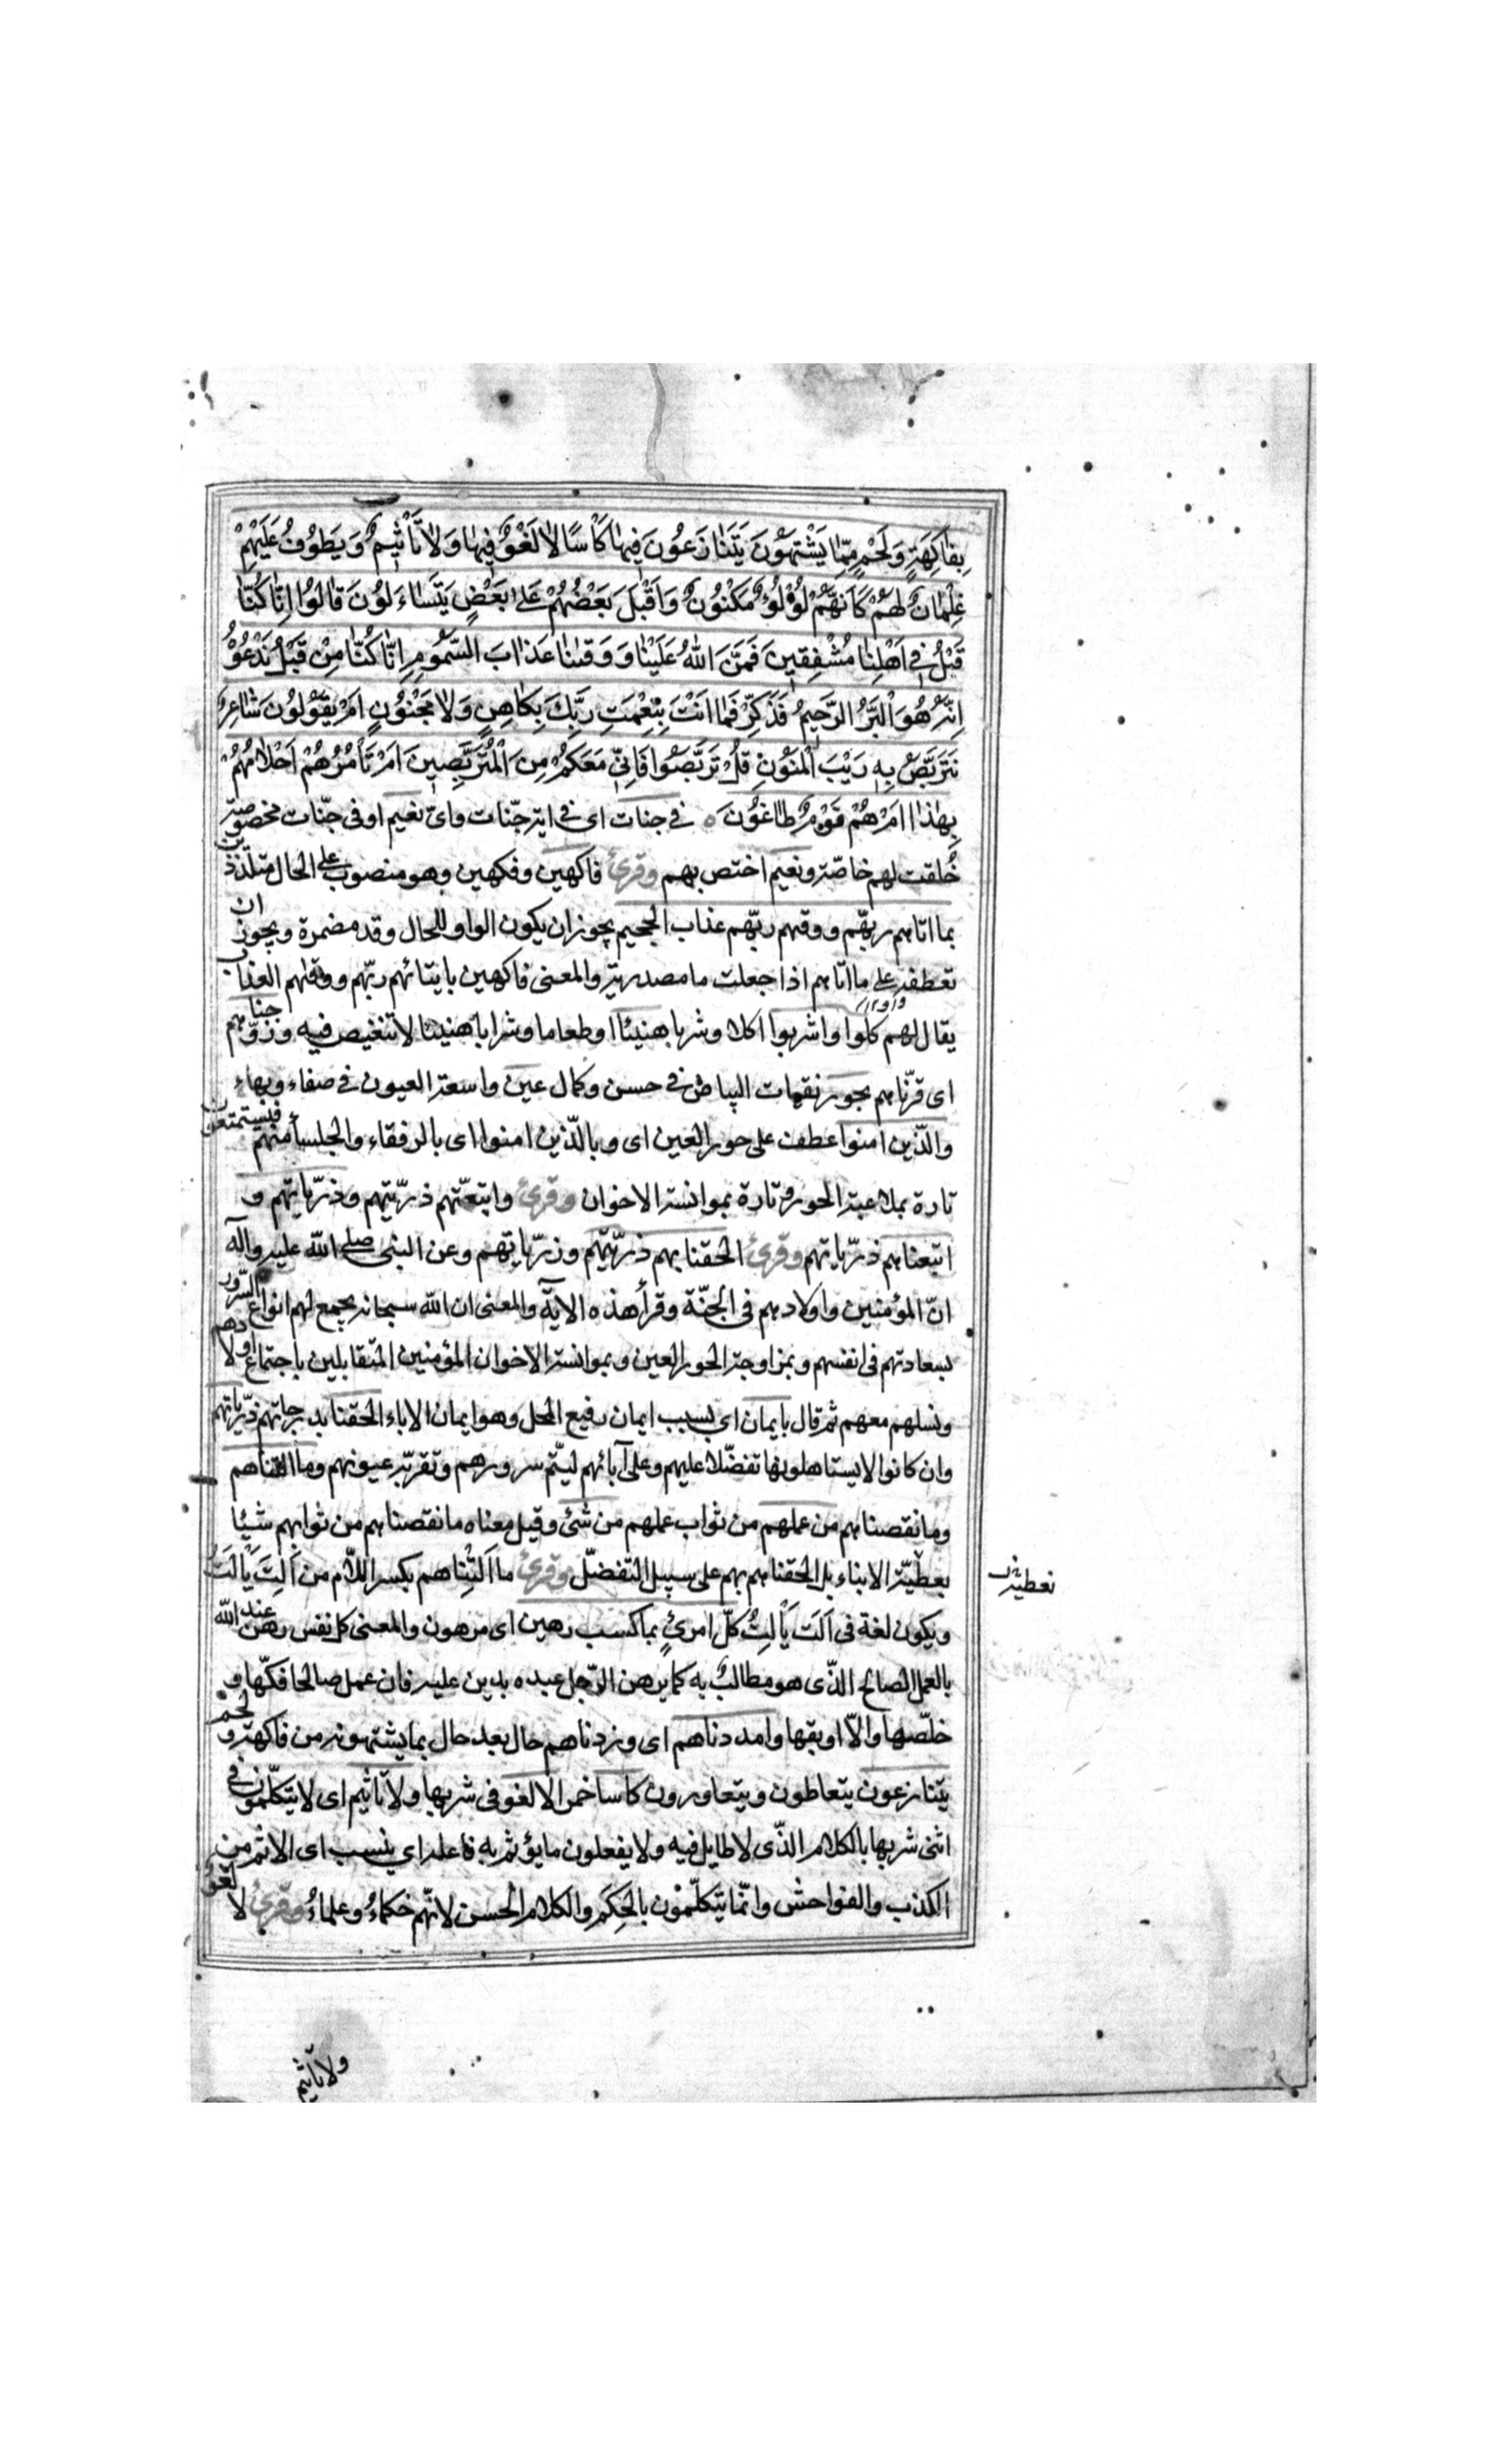 بِفَاكِهَةٍ وَلَحْمٍ مِمَّا يَشْتَهُونَ يَتَنَازَعُونَ فِيهَا كَأْسًا لَا لَغْوٌ فِيهَا وَلَا تَأْثِيمٌ وَيَطُوفُ عَلَيْهِمْ
غِلْمَانٌ لَهُمْ كَأَنَّهُمْ لُؤْلُؤٌ مَكْنُونٌ وَأَقْبَلَ بَعْضُهُمْ عَلَى بَعْضٍ يَتَسَاءَلُونَ قَالُوا إِنَّا كُنَّا
قَبْلُ فِي أَهْلِنَا مُشْفِقِينَ فَمَنَّ اللَّهُ عَلَيْنَا وَوَقَانَا عَذَابَ السَّمُومِ إِنَّا كُنَّا مِنْ قَبْلُ نَدْعُوهُ
إِنَّهُ هُوَ الْبَرُّ الرَّحِيمُ فَذَكِّرْ فَمَا أَنْتَ بِنِعْمَتِ رَبِّكَ بِكَاهِنٍ وَلَا مَجْنُونٍ أَمْ يَقُولُونَ شَاعِرٌ
نَتَرَبَّصُ بِهِ رَيْبَ الْمَنُونِ قُلْ تَرَبَّصُوا فَإِنِّي مَعَكُمْ مِنَ الْمُتَرَبِّصِينَ أَمْ تَأْمُرُهُمْ أَحْلَامُهُمْ
بِهَذَا أَمْ هُمْ قَوْمٌ طَاغُونَ ه في جنات اى في اية جنّات واىّ نعيم او فى جنّات مخصوصة
خُلقت لهم خاصّة ونعيم اختص بهم وقرئ فاكهين وفكهين وهو منصوب على الحال متلذّذين
بما اتاهم ربهّم ووقهم ربّهم عذاب الجحيم يجوز ان يكون الواو للحال وقد مضمرة ويجوز ان
تعطفه على ما اتاهم اذا جعلت ما مصدرية والمعنى فاكهين بايتائهم ربّهم ووقهم العذاب
يقال لهم كلوا واشربوا اكلا وشربا هنيئا او طعاما وشرابا هنيئا لا تنغيص فيه وزوّجناهم
اى قرنّاهم بحور نقيات البياض في حسن وكمال عين واسعة العيون في صفاء وبهاء
والّذين امنوا عطف على حور العين اى وبالّذين امنوا اى بالرفقاء والجلساء منهم فيستمتعون
تارة بملاعبة الحور وتارة بموانسة الاخوان وقرئ واتبعّتهم ذرّيتهم وذرّياتهم و
اتبعناهم ذرّياتهم وقرئ الحقنا بهم ذرّيّتهم وذرّياتهم وعن النبى صلى الله عليه وآله
انّ المؤمنين واولادهم فى الجنّة وقرأ هذه الاية والمعنى ان الله سبحانه يجمع لهم انواع السّرور
بسعادتهم فى انفسهم وبمزاوجة الحور العين وبموانسة الاخوان المؤمنين المتقابلين باجتماع اولادهم
ونسلهم معهم ثم قال بايمان اى بسبب ايمان رفيع المحل وهو ايمان الاباء الحقنا بدرجاتهم ذرّياتهم
وان كانوا لا يستاهلونها تفضّلا عليهم وعلى آبائهم ليتّم سرورهم وتقر به عيونهم وما التناهم
وما نقصناهم من عملهم من ثواب عملهم من شئ وقيل معناه ما نقصناهم من ثوابهم شيئا
بعطيّة الابناء بل الحقناهم بهم على سبيل التفضّل وقرئ ما اَلِتْناهم بكسر اللّام من اَلِتَ يَأْلَتُ
تعطيه
ويكون لغة فى اَلَتَ يَأْلِتُ كلّ امرئٍ بما كسب رهين اى مرهون والمعنى كل نفس رهن عند الله
بالعمل الصالح الذّى هو مطالبٌ به كما يرهن الرّجل عبده بدين عليه فان عمل صالحا فكّها و
خلّصها والاّ اوبقها وامددناهم اى وزدناهم حال بعد حال بما يشتهونه من فاكهة ولحم
يتنازعون يتعاطون ويتعاورون كاسا خمرا لا لغو فى شربها ولا تاثيم اى لا يتكلّمون في
اثنى شربها بالكلام الذّى لا طايل فيه ولا يفعلون ما يؤثم به فاعله اى ينسب اى الاثم من
الكذب والفواحش وانّما يتكلّمون بالحِكَم والكلام الحسن لانّهم حكماءُ وعلماءُ وقرئ لا لغو
ولا تاثيم